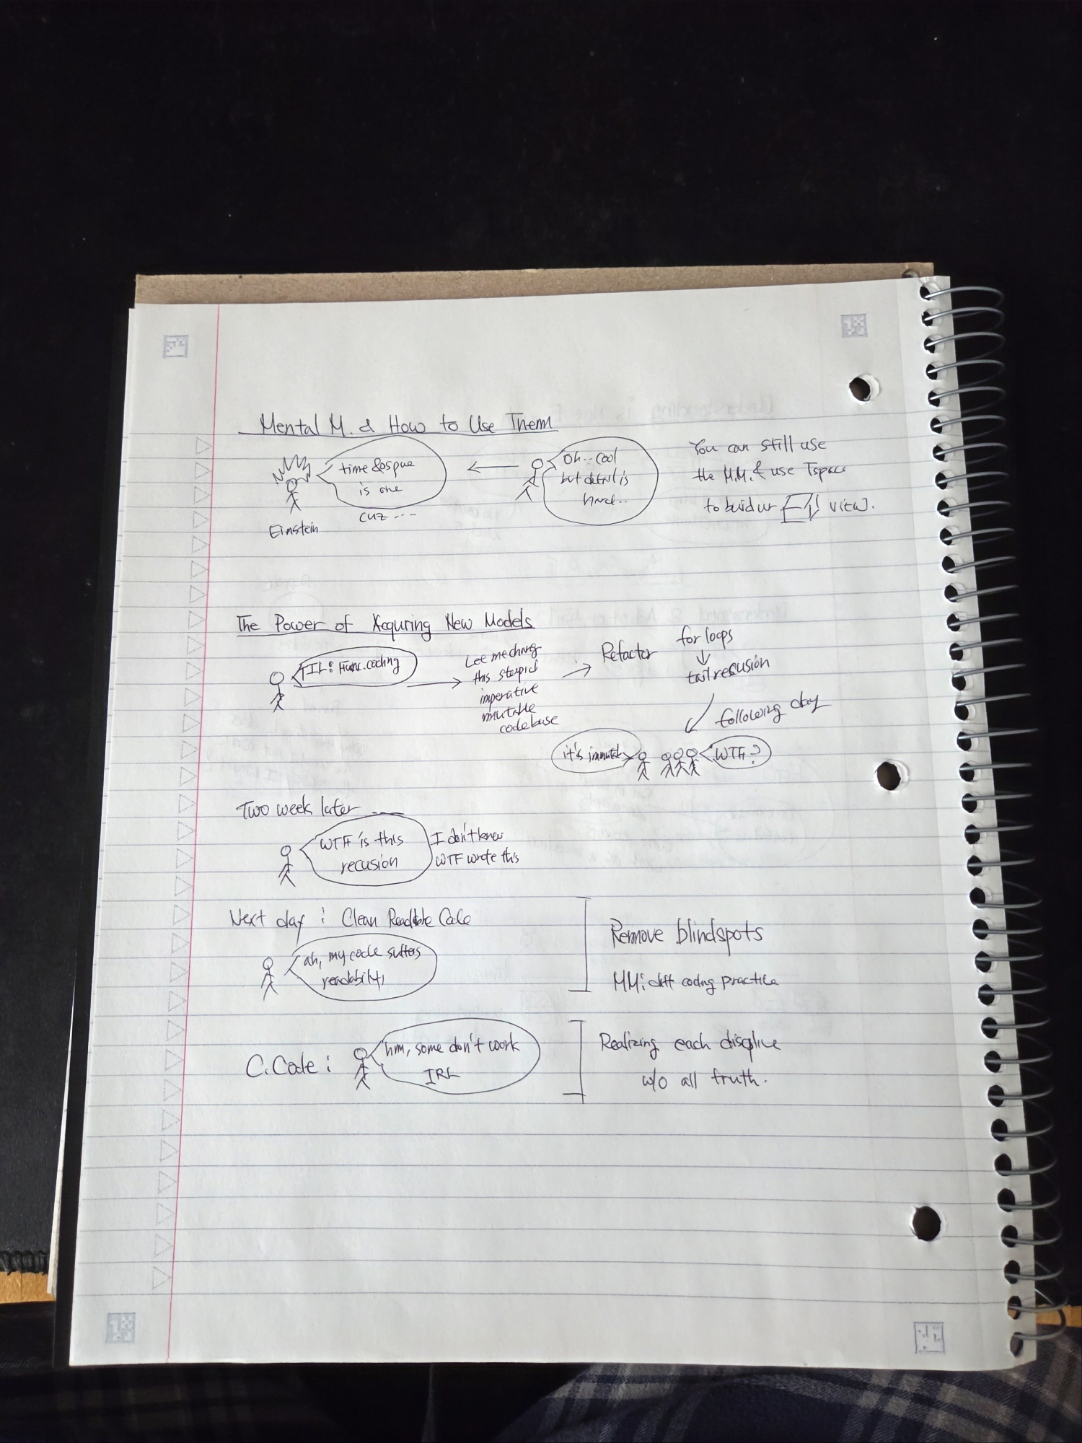 Mental M. & How to Use Them
time & space
is one
cuz ...
Einstein
Oh.. cool
but detail is
hard...
You can still use
the M.M. & use Tspace
to build ur view.
The Power of Acquring New Models
TIL: Func. coding
Let me change
this stupid
imperative
mutable
codebase
Refactor
for loops
tail recusion
following day
it's immutable
WTF?
Two week later
WTF is this
recusion
I don't know
WTF wrote this
Next day : Clean Readble Code
ah, my code suffers
readability
Remove blindspots
MM: diff coding practice
C.Code :
hm, some don't work
IRL
Realizing each
w/o all truth.